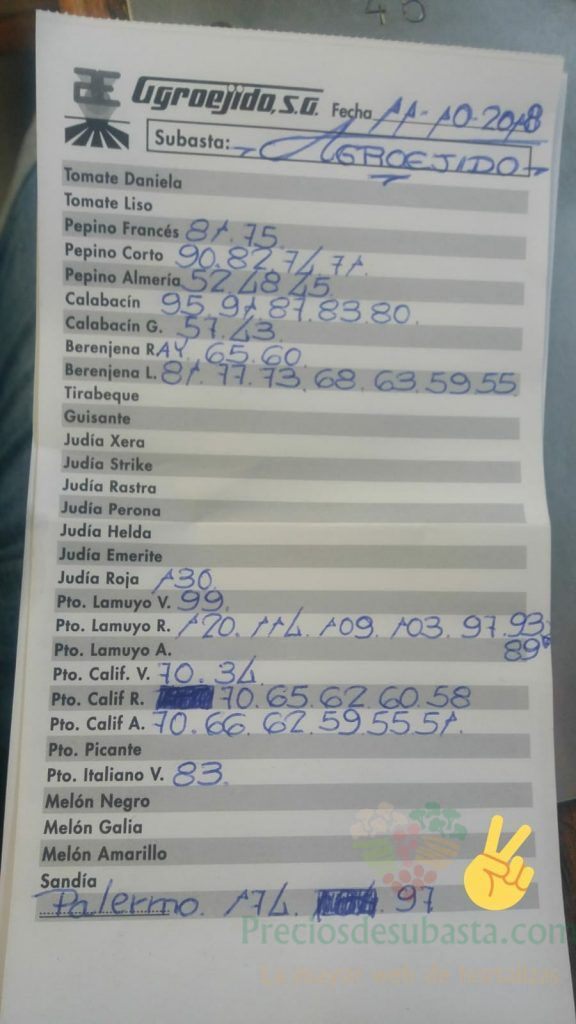 45
Agroejido, S.A. Fecha 11-10-2018
Subasta: AGROEJIDO
Tomate Daniela
Tomate Liso
Pepino Francés 81.75
Pepino Corto 90.82.74.71.
Pepino Almería 52.48.45
Calabacín 95.91.87.83.80.
Calabacín G. 57.43.
Berenjena RAY. 65.60.
Berenjena L. 81.77.73.68.63.59.55
Tirabeque
Guisante
Judía Xera
Judía Strike
Judía Rastra
Judía Perona
Judía Helda
Judía Emerite
Judía Roja 130.
Pto. Lamuyo V. 99.
Pto. Lamuyo R. 120.114.109.103.97.93
Pto. Lamuyo A. 89
Pto. Calif. V. 70.34
Pto. Calif R. 70.65.62.60.58
Pto. Calif A. 70.66.62.59.55.51.
Pto. Picante
Pto. Italiano V. 83.
Melón Negro
Melón Galia
Melón Amarillo
Sandía
Palermo. 174. 97
Preciosdesubasta.com
La mayor web de hortalizas